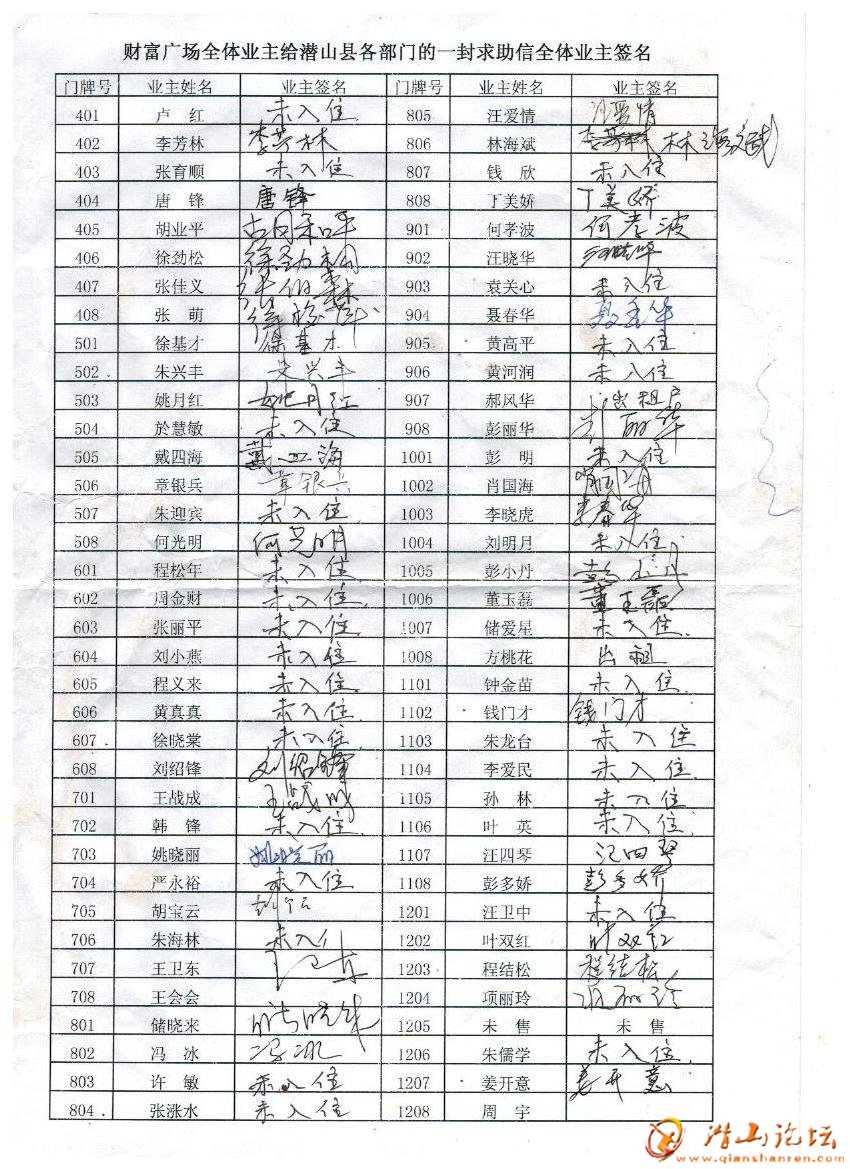 财富广场全体业主给潜山县各部门的一封求助信全体业主签名
门牌号 业主姓名 业主签名 门牌号 业主姓名 业主签名
401 卢 红 未入住 805 汪爱情 汪爱情
402 李芳林 李芳林 806 林海斌 林海斌
403 张育顺 未入住 807 钱 欣 未入住
404 唐 锋 唐锋 808 丁美娇 丁美娇
405 胡业平 901 何孝波 何孝波
406 徐劲松 徐劲松 902 汪晓华 汪晓华
407 张佳义 903 袁关心 未入住
408 张 萌 904 聂春华
501 徐基才 徐基才 905 黄高平 未入住
502 朱兴丰 朱兴丰 906 黄河润 未入住
503 姚月红 姚月红 907 郝风华 出租户
504 於慧敏 未入住 908 彭丽华 彭丽华
505 戴四海 戴四海 1001 彭 明 未入住
506 章银兵 章银兵 1002 肖国海
507 朱迎宾 未入住 1003 李晓虎 李春华
508 何光明 何光明 1004 刘明月 未入住
601 程松年 未入住 1005 彭小丹 彭小丹
602 周金财 未入住 1006 董玉磊 董玉磊
603 张丽平 未入住 1007 储爱星 未入住
604 刘小燕 未入住 1008 方桃花 出租
605 程义来 未入住 1101 钟金苗 未入住
606 黄真真 未入住 1102 钱门才 钱门才
607 徐晓棠 未入住 1103 朱龙台 未入住
608 刘绍锋 刘绍锋 1104 李爱民 未入住
701 王战成 王战成 1105 孙 林 未入住
702 韩 锋 未入住 1106 叶 英 未入住
703 姚晓丽 姚晓丽 1107 汪四琴 汪四琴
704 严永裕 未入住 1108 彭多娇 彭多娇
705 胡宝云 1201 汪卫中 未入住
706 朱海林 未入住 1202 叶双红 叶双红
707 王卫东 王卫东 1203 程结松 程结松
708 王会会 1204 项丽玲 项丽玲
801 储晓来 1205 未 售 未 售
802 冯 冰 冯冰 1206 朱儒学 未入住
803 许 敏 未入住 1207 姜开意 姜开意
804 张涨水 未入住 1208 周 宇
潜山论坛
www.qianshanren.com